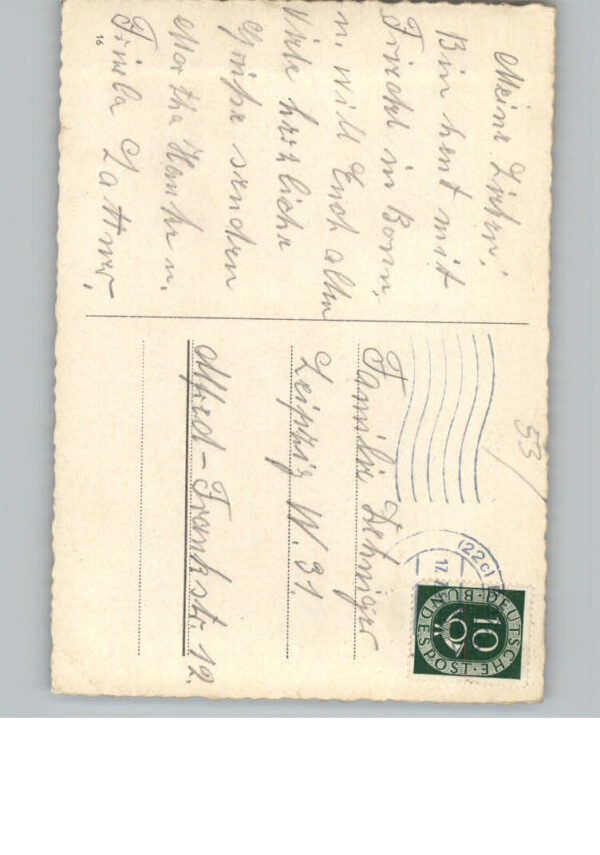 Meine Lieben!
Bin heut mit
Friedel in Bonn,
u. will Euch allen
Viele herzliche
Grüße senden
Martha u.
16
Familie
Leipzig W. 31.
Alfred-Frankstr 12.
53
(22c)
17.
DEUTSCHE BUNDESPOST
10